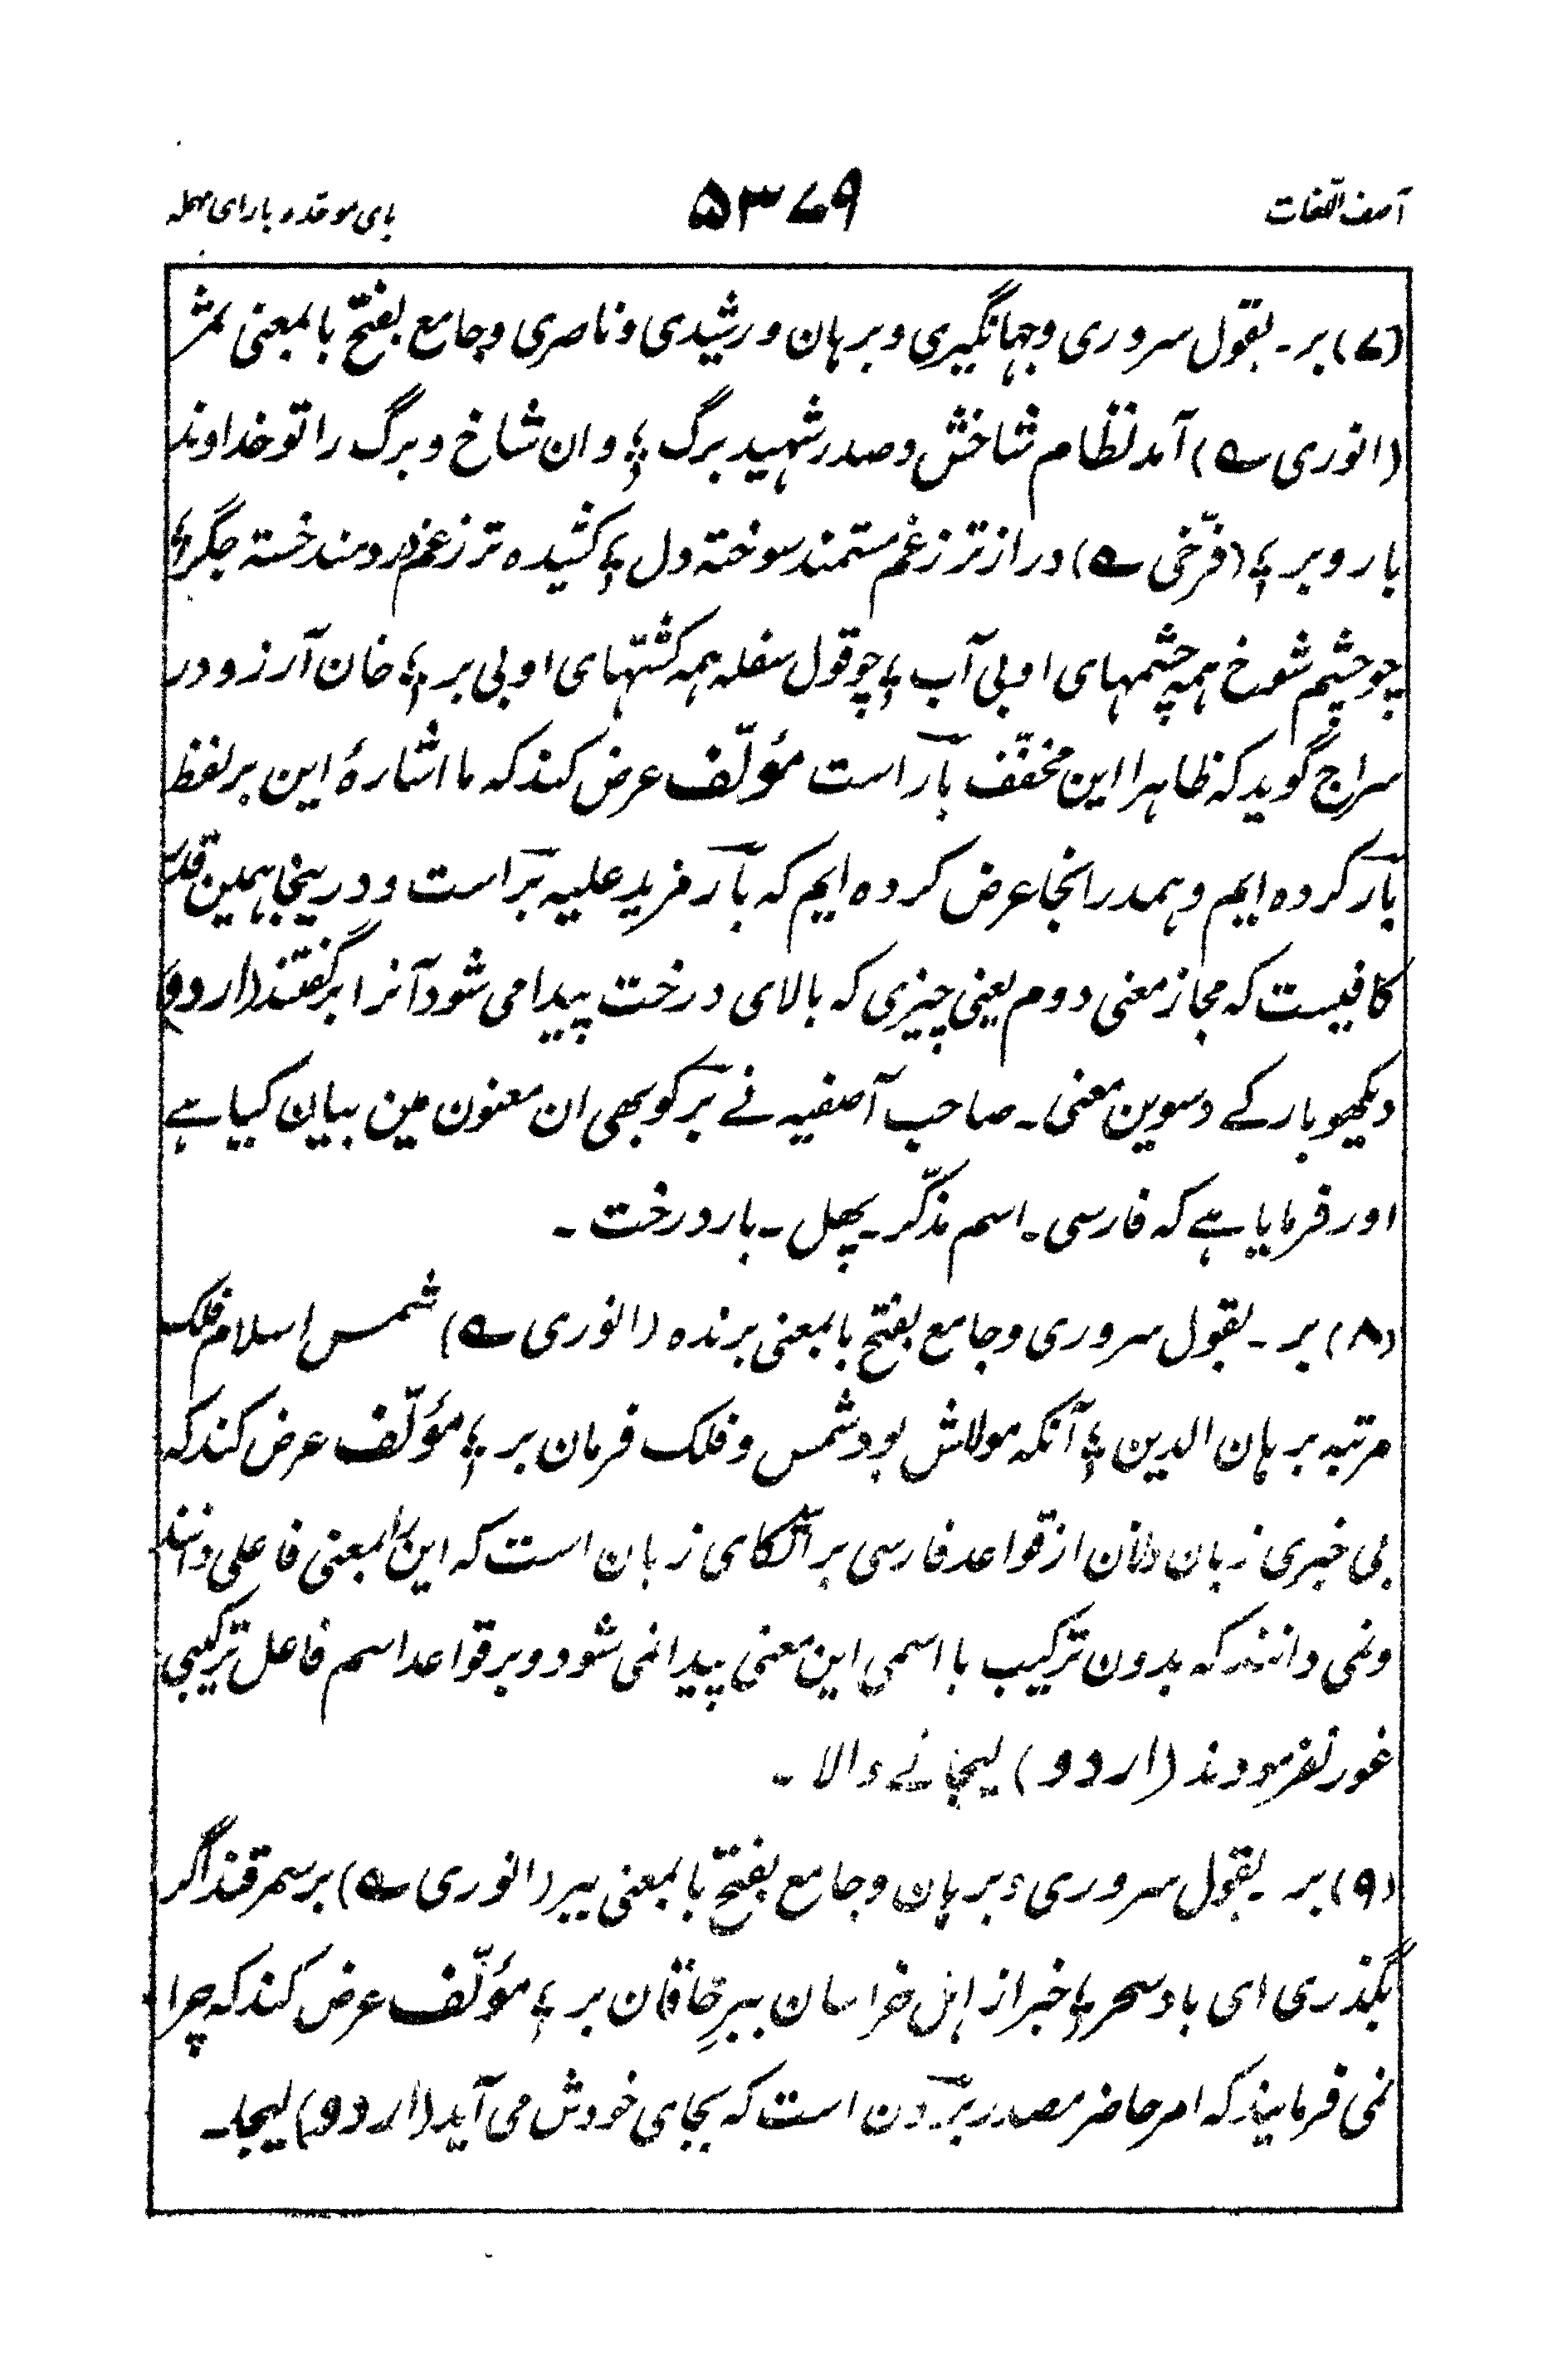 آصف اللّغات ۵۳۷۹ بای موحّدہ بارای مہملہ
(۷) بر۔ بقول سروری وجہانگیری وبرہان ورشیدی وناصری وجامع بفتح با بمعنی ثمر
(انوری ے) آمد نظام شاخش وصدر شہید برگ ؛ وان شاخ وبرگ را تو خداوند
بار وبر ؛ (فرّخی ے) درازتر زغم مستمند سوختہ دل ؛ کشیدہ تر زغم دردمند خستہ جگر ؛
چو چشم شوخ ہمہ چشمہای او بی آب ؛ چو قول سفلہ ہمہ کشتہای او بی بر ؛ خان آرزو در
سراج گوید کہ ظاہرا این مخفّف بار است مؤلّف عرض کند کہ ما اشارۂ این بر لفظ
بار کردہ ایم وہمدرانجا عرض کردہ ایم کہ بار مزید علیہ بر است ودرینجا ہمین قدر
کافیست کہ مجاز معنی دوم یعنی چیزی کہ بالای درخت پیدا می شود آنرا بر گفتند (اردو)
دیکھو بار کے دسوین معنی۔ صاحب آصفیہ نے بر کو بھی ان معنون مین بیان کیا ہے
اور فرمایا ہے کہ فارسی۔ اسم مذکّر۔ پھل۔ بار درخت۔
(۸) بر۔ بقول سروری وجامع بفتح با بمعنی برندہ (انوری ے) شمس اسلام فلک
مرتبہ برہان الدین ؛ آنکہ مولاش بود شمس وفلک فرمان بر ؛ مؤلّف عرض کند کہ
بی خبری زبان دانان از قواعد فارسی بر اتکای زبان است کہ این را بمعنی فاعلی دانند
ونمی دانند کہ بدون ترکیب با اسمی این معنی پیدا نمی شود وبر قواعد اسم فاعل ترکیبی
غور نفرمودند (اردو) لیجانے والا۔
(۹) بر۔ بقول سروری وبرہان وجامع بفتح با بمعنی ببر (انوری ے) بر سمرقند اگر
بگذری ای باد سحر ؛ خبر از اہل خراسان ببرِ خاقان بر ؛ مؤلّف عرض کند کہ چرا
نمی فرمایند کہ امر حاضر مصدر بردن است کہ بجای خودش می آید (اردو) لیجا۔